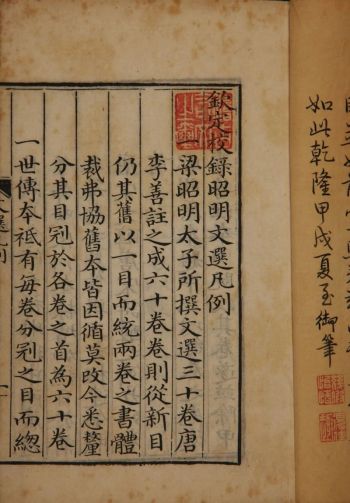 如此乾隆甲戌夏至御筆
欽定校錄昭明文選凡例
梁昭明太子所撰文選三十卷唐
李善註之成六十卷卷則從新目
仍其舊以一目而統兩卷之書體
裁弗協舊本皆因循莫改今悉釐
分其目冠於各卷之首為六十卷
一世傳本祇有每卷分冠之目而總